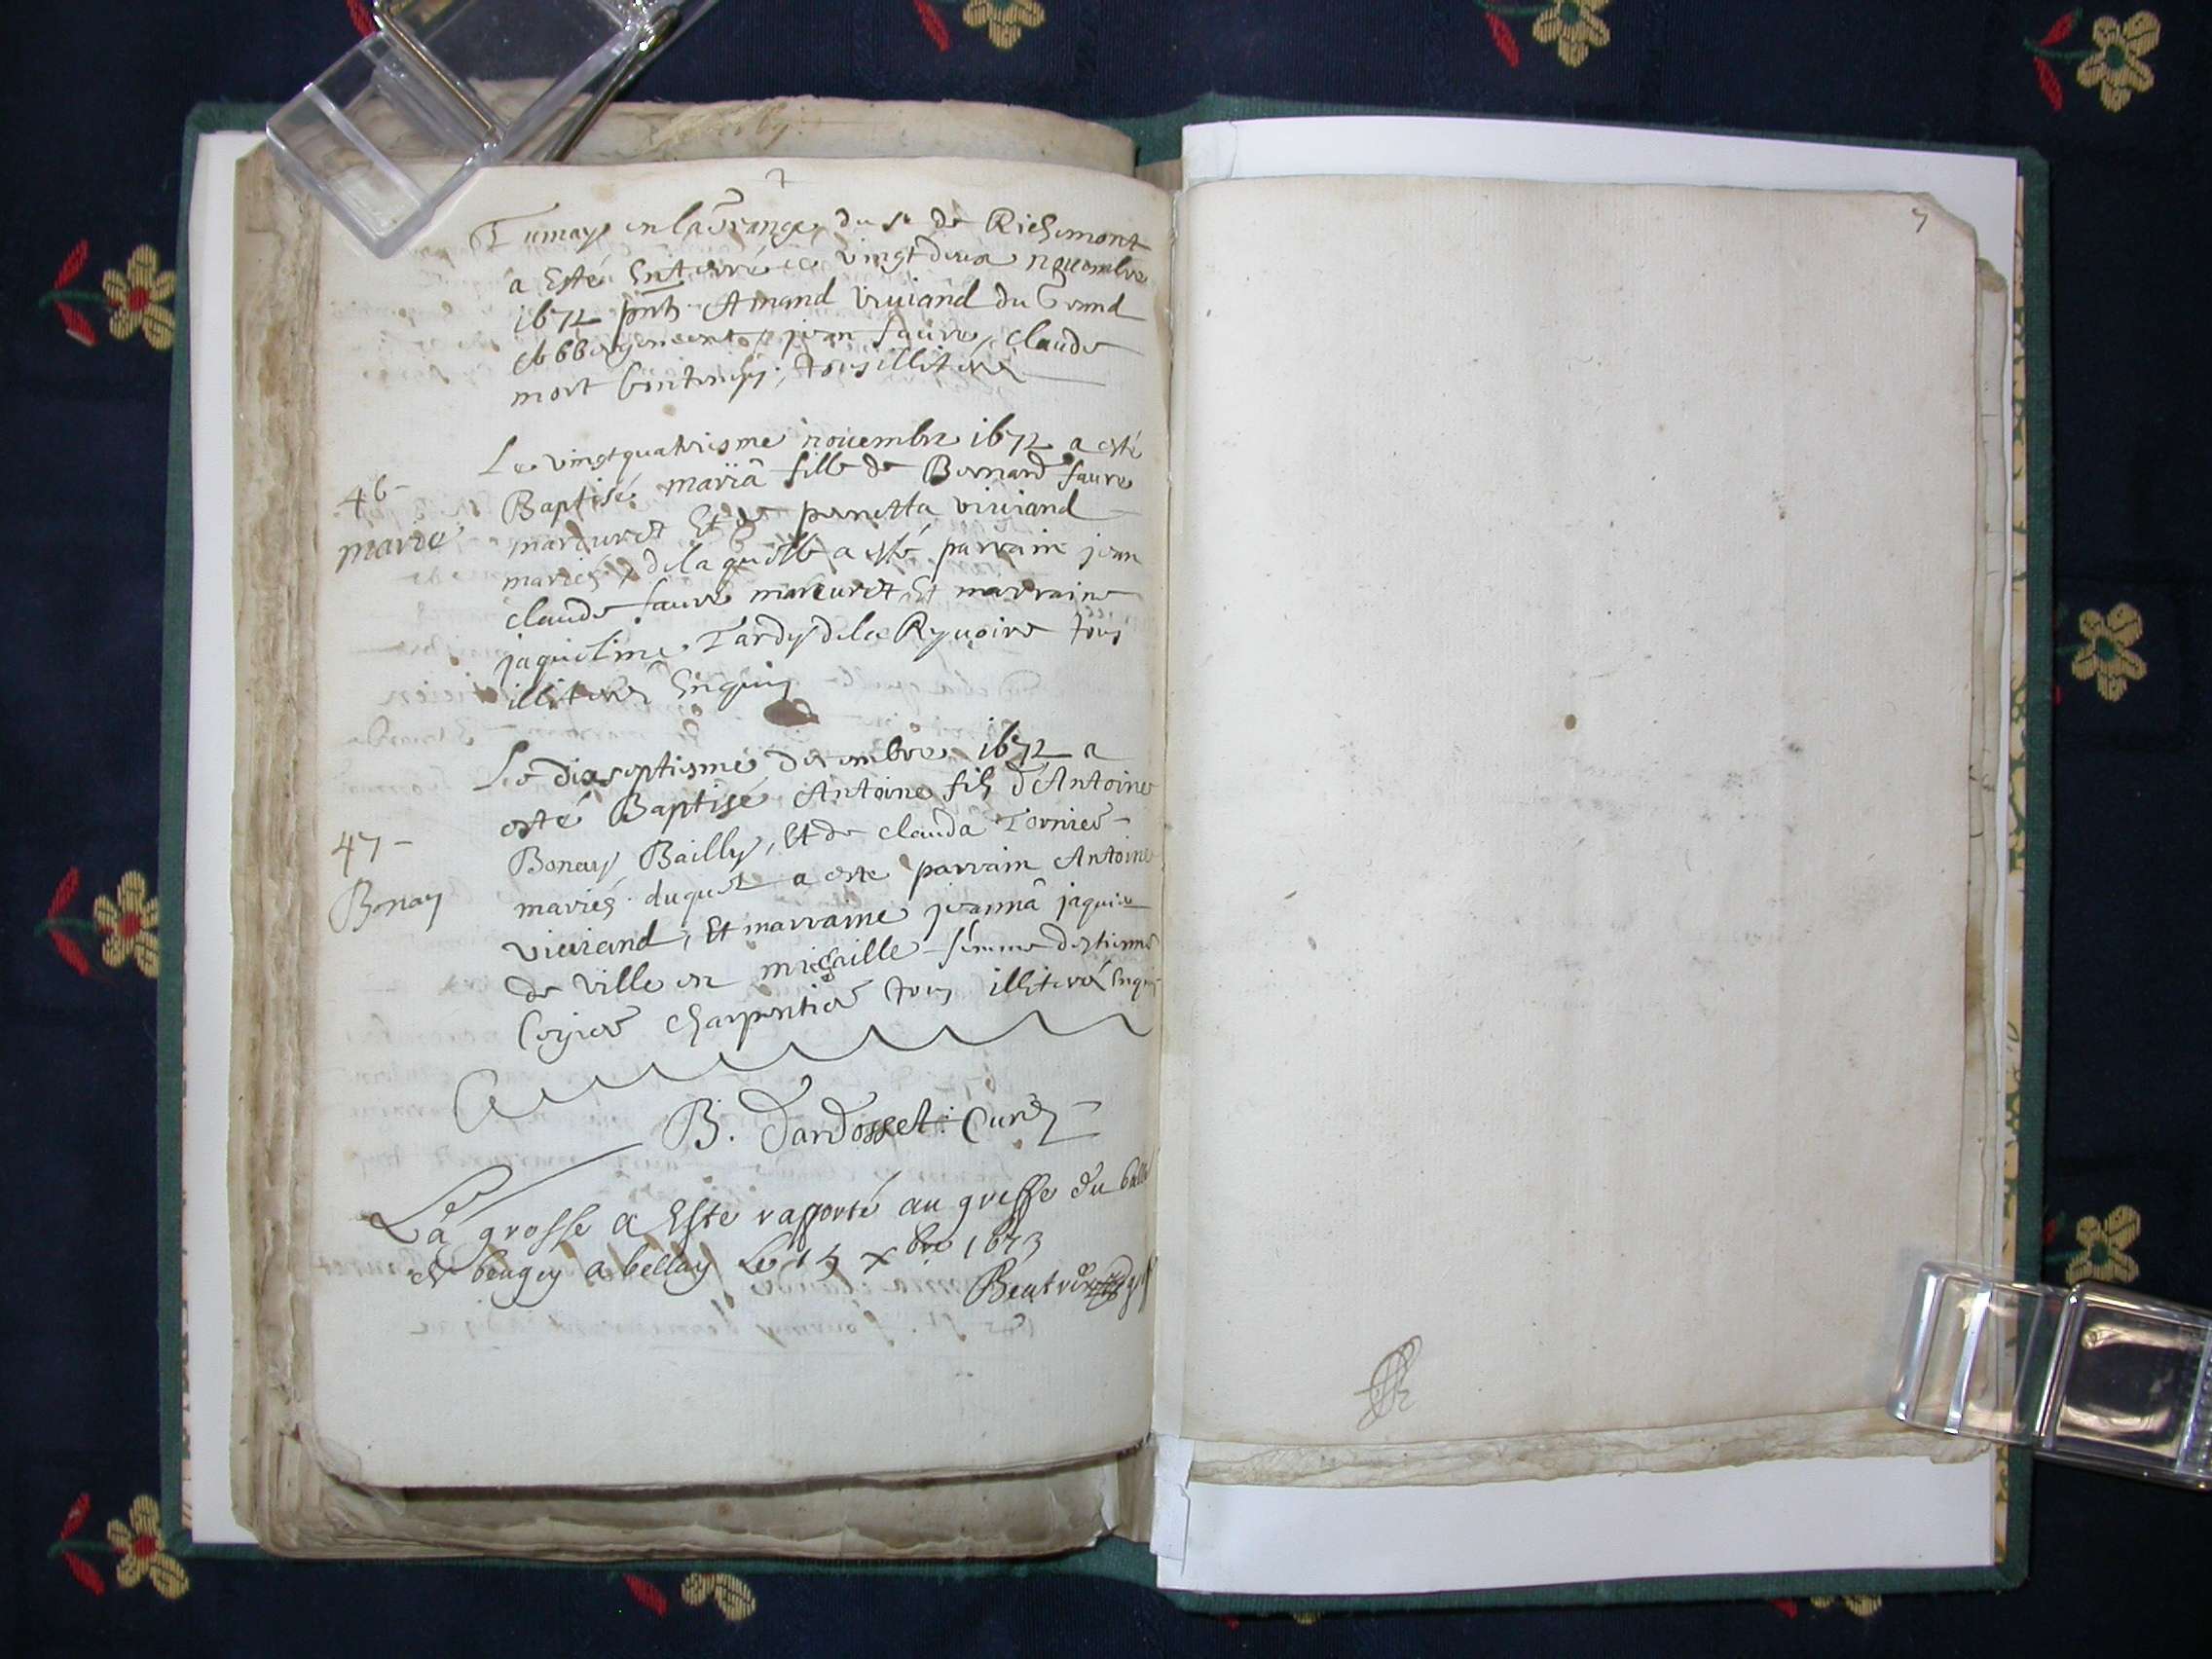 7
Tumay en la Grange du Sr de Richemont
a Esté Enterré ce vingtdeux nouembre
1672 pnts Amand viuiand du Grand
Abbergement, jean faure, claude
mort tous illiterés
Le vingtquatriesme nouembre 1672 a esté
46 -
marie
Baptisé mariâ fille de Bernard faure
marcuret Et de pernetta viuiand
mariés, de laquelle a esté parrain jean
claude faure marcuret, Et marraine
jaqueline Tardy de la Ryuoire tous
illiterés Enquis
Le dixseptiesme decembre 1672 a
esté Baptisé Antoine fils d'Antoine
47 -
Bonay
Bonay Bailly, Et de claudâ Tornier
mariés duquel a esté parrain Antoine
viuiand, Et marraine jeannâ jaquin
de ville en michaille femme d'estienne
charpentier tous illiteré Enquis
B. Dardosset Curé
La grosse a Esté rapporté au greffe du
de beugey a bellay Le 15 xbre 1673
7